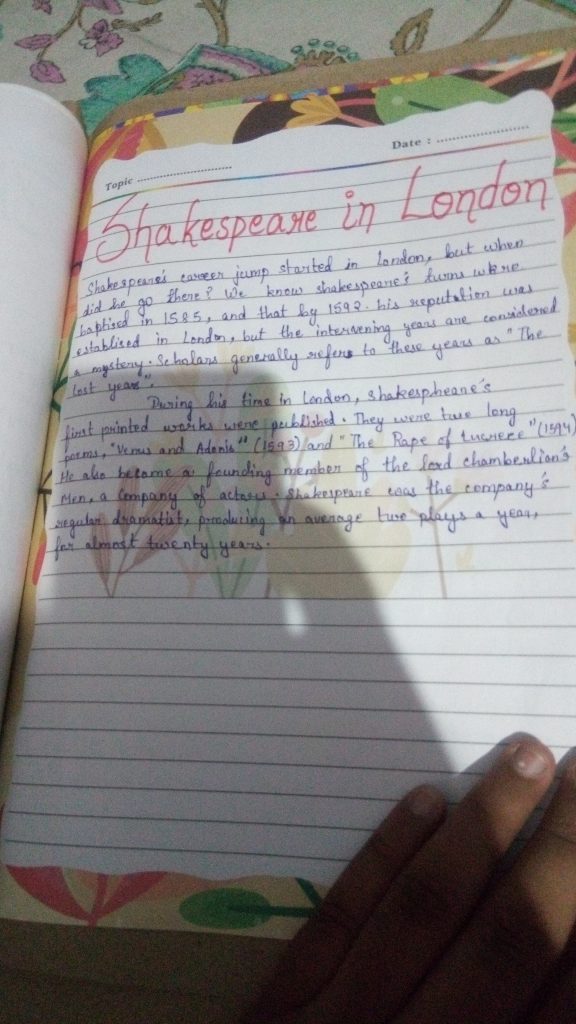 Topic ..........................
Date : ..........................
Shakespeare in London
Shakespeare's career jump started in London, but when
did he go there? We know shakespeare's turns were
baptised in 1585, and that by 1592. his reputation was
establised in London, but the intervening years are considered
a mystery. Scholars generally refers to these years as "The
lost years".
During his time in London, shakespheare's
first printed works were published. They were two long
poems, "Venus and Adonis" (1593) and "The Rape of lucrece" (1594)
He also become a founding member of the lord chamberlian's
Men, a Company of actors. Shakespeare was the company's
regular dramatist, producing an average two plays a year,
for almost twenty years.